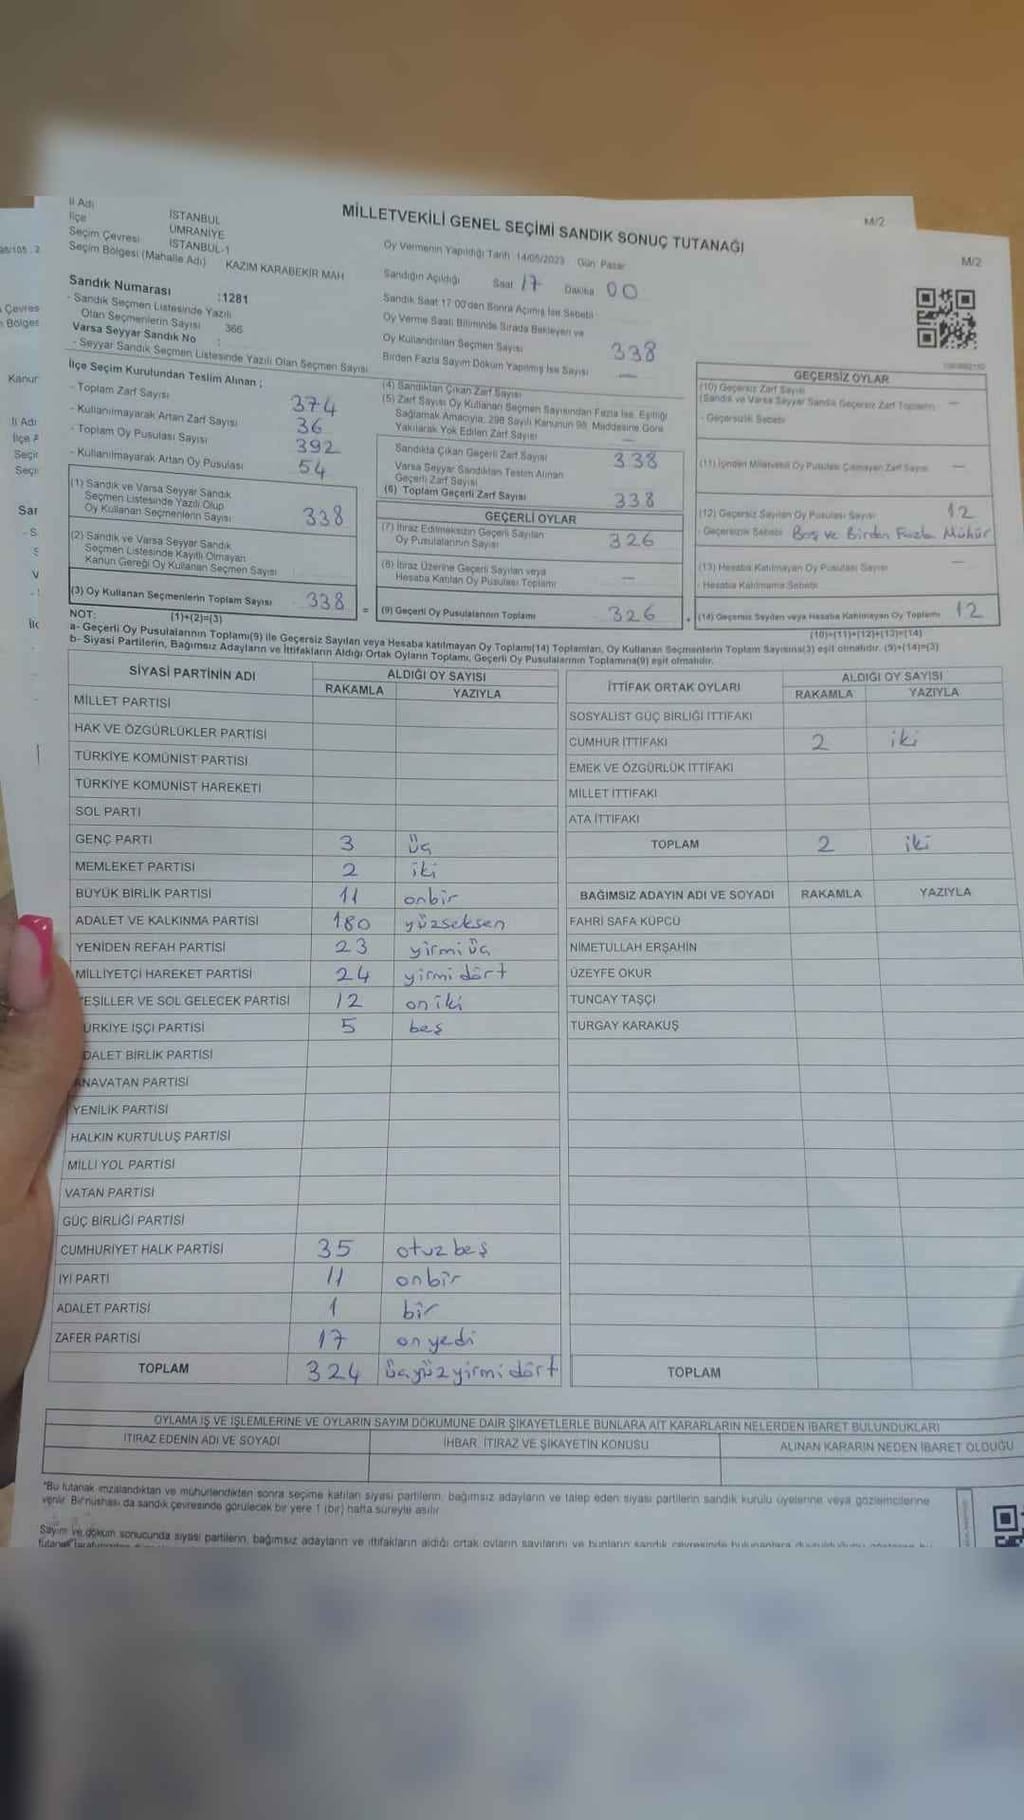 M/2
İl Adı
İlçe İSTANBUL
Seçim Çevresi ÜMRANİYE
Seçim Bölgesi (Mahalle Adı) İSTANBUL-1
KAZIM KARABEKİR MAH
MİLLETVEKİLİ GENEL SEÇİMİ SANDIK SONUÇ TUTANAĞI
M/2
Oy Vermenin Yapıldığı Tarih 14/05/2023 Gün Pazar
Sandığın Açıldığı Saat 17 Dakika 00
Sandık Saat 17:00'den Sonra Açılmış İse Sebebi
Oy Verme Saati Bitiminde Sırada Bekleyen ve
Oy Kullandırılan Seçmen Sayısı 338
Birden Fazla Sayım Döküm Yapılmış İse Sayısı —
Sandık Numarası :1281
- Sandık Seçmen Listesinde Yazılı
Olan Seçmenlerin Sayısı 366
Varsa Seyyar Sandık No :
- Seyyar Sandık Seçmen Listesinde Yazılı Olan Seçmen Sayısı
İlçe Seçim Kurulundan Teslim Alınan ;
- Toplam Zarf Sayısı 374
- Kullanılmayarak Artan Zarf Sayısı 36
- Toplam Oy Pusulası Sayısı 392
- Kullanılmayarak Artan Oy Pusulası 54
(1) Sandık ve Varsa Seyyar Sandık
Seçmen Listesinde Yazılı Olup
Oy Kullanan Seçmenlerin Sayısı 338
(2) Sandık ve Varsa Seyyar Sandık
Seçmen Listesinde Kayıtlı Olmayan
Kanun Gereği Oy Kullanan Seçmen Sayısı
(3) Oy Kullanan Seçmenlerin Toplam Sayısı 338 =
(1)+(2)=(3)
(4) Sandıktan Çıkan Zarf Sayısı
(5) Zarf Sayısı Oy Kullanan Seçmen Sayısından Fazla İse, Eşitliği
Sağlamak Amacıyla, 298 Sayılı Kanunun 98. Maddesine Göre
Yakılarak Yok Edilen Zarf Sayısı —
Sandıkta Çıkan Geçerli Zarf Sayısı 338
Varsa Seyyar Sandıktan Teslim Alınan
Geçerli Zarf Sayısı
(6) Toplam Geçerli Zarf Sayısı 338
GEÇERLİ OYLAR
(7) İtiraz Edilmeksizin Geçerli Sayılan
Oy Pusulalarının Sayısı 326
(8) İtiraz Üzerine Geçerli Sayılan veya
Hesaba Katılan Oy Pusulası Toplamı —
(9) Geçerli Oy Pusulalarının Toplamı 326
GEÇERSİZ OYLAR
(10) Geçersiz Zarf Sayısı
(Sandık ve Varsa Seyyar Sandık Geçersiz Zarf Toplamı) —
- Geçersizlik Sebebi
(11) İçinden Milletvekili Oy Pusulası Çıkmayan Zarf Sayısı —
(12) Geçersiz Sayılan Oy Pusulası Sayısı 12
- Geçersizlik Sebebi Boş ve Birden Fazla Mühür
(13) Hesaba Katılmayan Oy Pusulası Sayısı —
- Hesaba Katılmama Sebebi
(14) Geçersiz Sayılan veya Hesaba Katılmayan Oy Toplamı 12
(10)+(11)+(12)+(13)=(14)
NOT:
a- Geçerli Oy Pusulalarının Toplamı(9) ile Geçersiz Sayılan veya Hesaba katılmayan Oy Toplam(14) Toplamları, Oy Kullanan Seçmenlerin Toplam Sayısına(3) eşit olmalıdır. (9)+(14)=(3)
b- Siyasi Partilerin, Bağımsız Adayların ve İttifakların Aldığı Ortak Oyların Toplamı, Geçerli Oy Pusulalarının Toplamına(9) eşit olmalıdır.
SİYASİ PARTİNİN ADI ALDIĞI OY SAYISI
RAKAMLA YAZIYLA
MİLLET PARTİSİ
HAK VE ÖZGÜRLÜKLER PARTİSİ
TÜRKİYE KOMÜNİST PARTİSİ
TÜRKİYE KOMÜNİST HAREKETİ
SOL PARTİ
GENÇ PARTİ 3 üç
MEMLEKET PARTİSİ 2 iki
BÜYÜK BİRLİK PARTİSİ 11 onbir
ADALET VE KALKINMA PARTİSİ 180 yüzseksen
YENİDEN REFAH PARTİSİ 23 yirmi üç
MİLLİYETÇİ HAREKET PARTİSİ 24 yirmi dört
EŞİLLER VE SOL GELECEK PARTİSİ 12 on iki
ÜRKİYE İŞÇİ PARTİSİ 5 beş
DALET BİRLİK PARTİSİ
ANAVATAN PARTİSİ
YENİLİK PARTİSİ
HALKIN KURTULUŞ PARTİSİ
MİLLİ YOL PARTİSİ
VATAN PARTİSİ
GÜÇ BİRLİĞİ PARTİSİ
CUMHURİYET HALK PARTİSİ 35 otuz beş
İYİ PARTİ 11 onbir
ADALET PARTİSİ 1 bir
ZAFER PARTİSİ 17 on yedi
TOPLAM 324 üçyüz yirmi dört
İTTİFAK ORTAK OYLARI ALDIĞI OY SAYISI
RAKAMLA YAZIYLA
SOSYALİST GÜÇ BİRLİĞİ İTTİFAKI
CUMHUR İTTİFAKI 2 iki
EMEK VE ÖZGÜRLÜK İTTİFAKI
MİLLET İTTİFAKI
ATA İTTİFAKI
TOPLAM 2 iki
BAĞIMSIZ ADAYIN ADI VE SOYADI RAKAMLA YAZIYLA
FAHRİ SAFA KÜPCÜ
NİMETULLAH ERŞAHİN
ÜZEYFE OKUR
TUNCAY TAŞÇI
TURGAY KARAKUŞ
TOPLAM
OYLAMA İŞ VE İŞLEMLERİNE VE OYLARIN SAYIM DÖKÜMÜNE DAİR ŞİKAYETLERLE BUNLARA AİT KARARLARIN NELERDEN İBARET BULUNDUKLARI
İTİRAZ EDENİN ADI VE SOYADI İHBAR, İTİRAZ VE ŞİKAYETİN KONUSU ALINAN KARARIN NEDEN İBARET OLDUĞU
*Bu tutanak imzalandıktan ve mühürlendikten sonra seçime katılan siyasi partilerin, bağımsız adayların ve talep eden siyasi partilerin sandık kurulu üyelerine veya gözlemcilerine
verilir. Bir nüshası da sandık çevresinde görülecek bir yere 1 (bir) hafta süreyle asılır.
Sayım ve döküm sonucunda siyasi partilerin, bağımsız adayların ve ittifakların aldığı ortak oyların sayılarını ve bunların sandık çevresinde